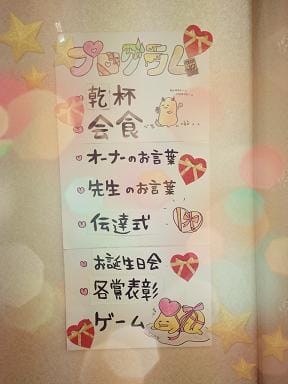 プログラム
乾杯
会食
オーナーのお言葉
先生のお言葉
伝達式
お誕生日会
各賞表彰
ゲーム